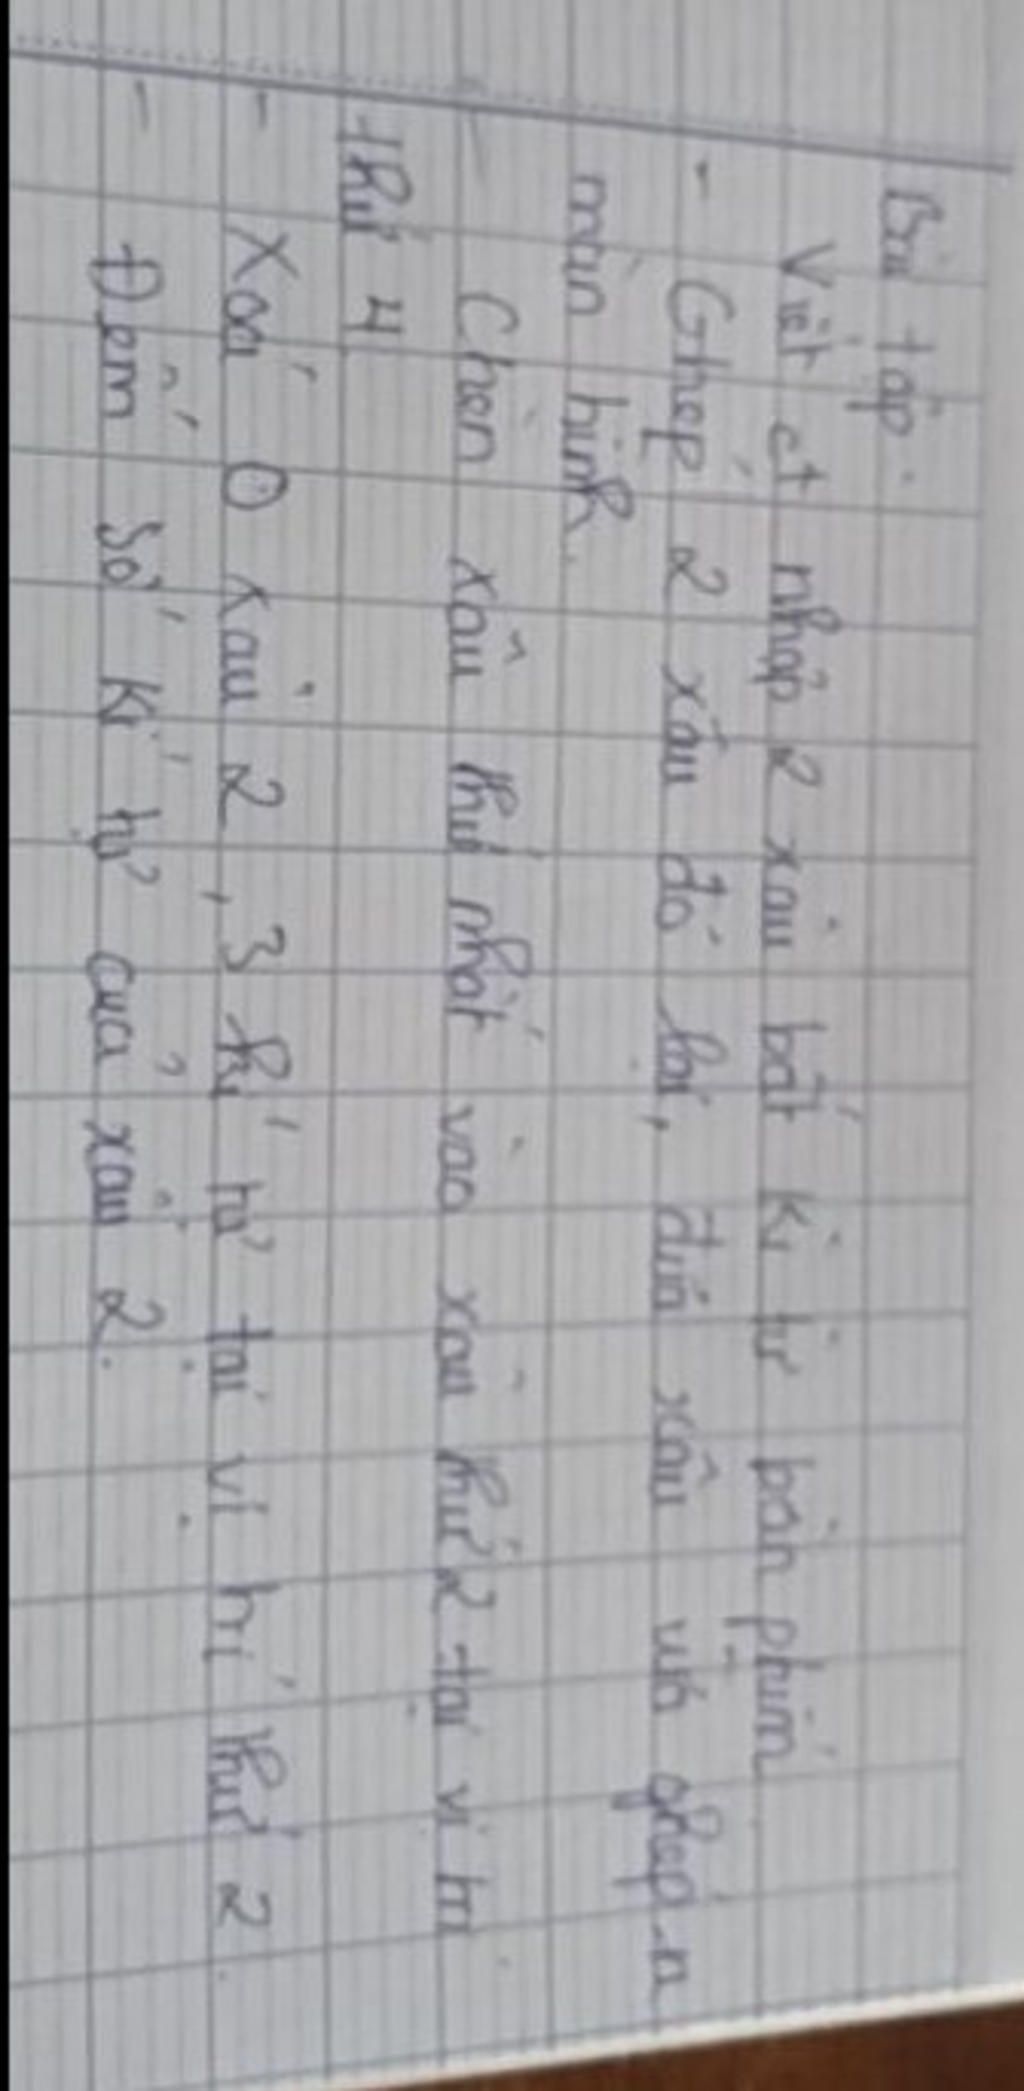 Bài tập:
Viết ct nhập 2 xâu bất kì từ bàn phím
- Ghép 2 xâu đó lại, đưa xâu vừa ghép ra
màn hình.
- Chèn xâu thứ nhất vào xâu thứ 2 tại vị trí
thứ 4
- Xoá ở xâu 2, 3 kí tự tại vị trí thứ 2.
- Đếm số kí tự của xâu 2.